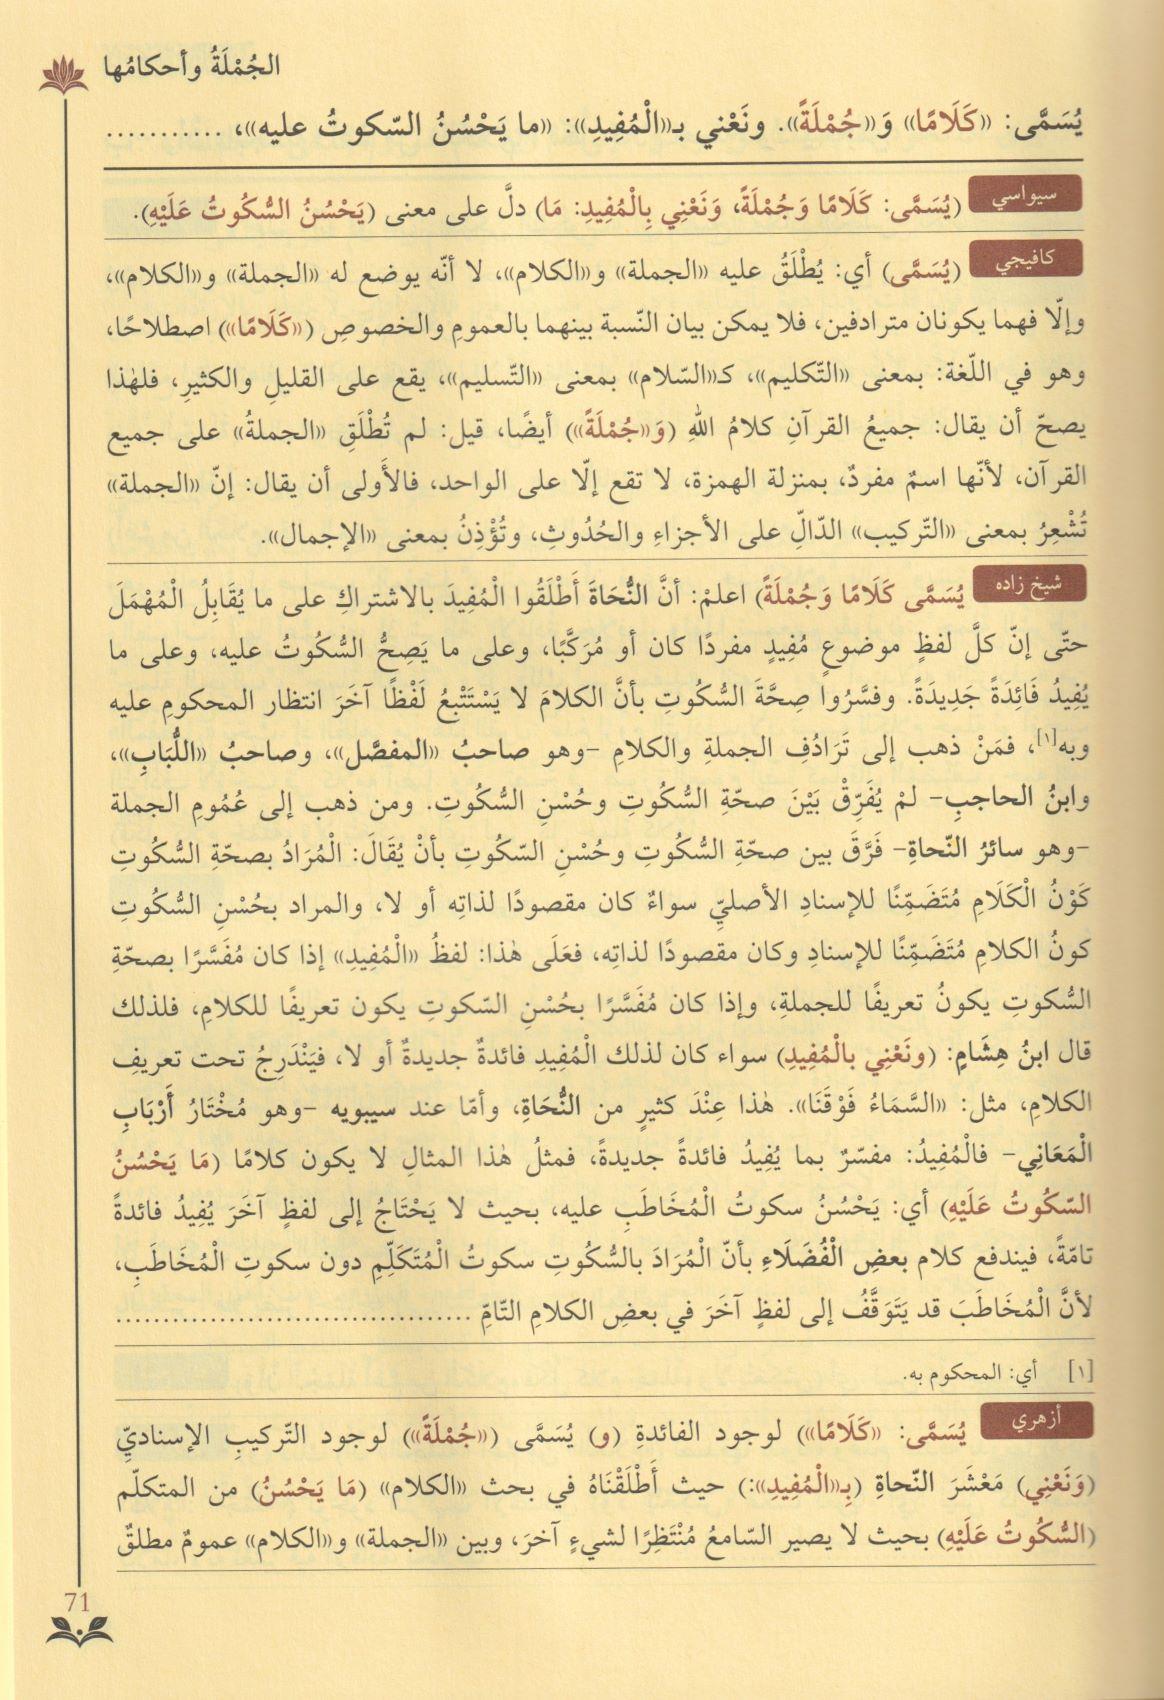 الجُمْلَةُ وأحكامُها
يُسَمَّى: «كَلَامًا» وَ«جُمْلَةً». ونَعْني بـ«الْمُفِيدِ»: «ما يَحْسُنُ السّكوتُ عليه»، ...........
سيواسي (يُسَمَّى: كَلَامًا وَجُمْلَةً، وَنَعْنِي بِالْمُفِيدِ: مَا) دلَّ على معنى (يَحْسُنُ السُّكُوتُ عَلَيْهِ).
كافيجي (يُسَمَّى) أي: يُطْلَقُ عليه «الجملة» و«الكلام»، لا أنّه يوضع له «الجملة» و«الكلام»،
وإلّا فهما يكونان مترادفين، فلا يمكن بيان النّسبة بينهما بالعمومِ والخصوصِ («كَلَامًا») اصطلاحًا،
وهو في اللّغة: بمعنى «التّكليم»، كـ«السّلام» بمعنى «التّسليم»، يقع على القليلِ والكثيرِ، فلهٰذا
يصحّ أن يقال: جميعُ القرآنِ كلامُ اللهِ (وَ«جُمْلَةً») أيضًا، قيل: لم تُطْلَقِ «الجملةُ» على جميع
القرآن، لأنّها اسمٌ مفردٌ، بمنزلة الهمزة، لا تقع إلّا على الواحد، فالأَولى أن يقال: إنّ «الجملة»
تُشْعِرُ بمعنى «التّركيب» الدّالِّ على الأجزاءِ والحُدُوثِ، وتُؤْذِنُ بمعنى «الإجمال».
شيخ زاده يُسَمَّى كَلَامًا وَجُمْلَةً) اعلمْ: أنَّ النُّحَاةَ أَطْلَقُوا الْمُفِيدَ بالاشتراكِ على ما يُقَابِلُ الْمُهْمَلَ
حتّى إنّ كلَّ لفظٍ موضوعٍ مُفِيدٍ مفردًا كان أو مُرَكَّبًا، وعلى ما يَصِحُّ السُّكُوتُ عليه، وعلى ما
يُفِيدُ فَائِدَةً جَدِيدَةً. وفسَّرُوا صِحَّةَ السُّكُوتِ بأنَّ الكلامَ لا يَسْتَتْبِعُ لَفْظًا آخَرَ انتظار المحكومِ عليه
وبه[١]، فمَنْ ذهب إلى تَرَادُفِ الجملةِ والكلامِ -وهو صاحبُ «المفصَّل»، وصاحبُ «اللُّبَابِ»،
وابنُ الحاجبِ- لمْ يُفَرِّقْ بَيْنَ صحّةِ السُّكُوتِ وحُسْنِ السُّكُوتِ. ومن ذهب إلى عُمُومِ الجملة
-وهو سائرُ النّحاةِ- فَرَّقَ بين صحّةِ السُّكُوتِ وحُسْنِ السّكوتِ بأنْ يُقَالَ: الْمُرَادُ بصحّةِ السُّكُوتِ
كَوْنُ الْكَلَامِ مُتَضَمِّنًا للإسنادِ الأصليِّ سواءٌ كان مقصودًا لذاتِه أو لا، والمراد بحُسْنِ السُّكُوتِ
كونُ الكلامِ مُتَضَمِّنًا للإسنادِ وكان مقصودًا لذاتِه، فعَلَى هٰذا: لفظُ «الْمُفِيدِ» إذا كان مُفَسَّرًا بصحّةِ
السُّكوتِ يكونُ تعريفًا للجملةِ، وإذا كان مُفَسَّرًا بحُسْنِ السّكوتِ يكون تعريفًا للكلامِ، فلذلك
قال ابنُ هِشَامٍ: (ونَعْنِي بالْمُفِيدِ) سواء كان لذلك الْمُفِيدِ فائدةٌ جديدةٌ أو لا، فيَنْدَرِجُ تحت تعريفِ
الكلامِ، مثل: «السَّمَاءُ فَوْقَنَا». هٰذا عِنْدَ كثيرٍ من النُّحَاةِ، وأمّا عند سيبويه -وهو مُخْتَارُ أَرْبَابِ
الْمَعَانِي- فالْمُفِيدُ: مفسّرٌ بما يُفِيدُ فائدةً جديدةً، فمثلُ هٰذا المثالِ لا يكون كلامًا (مَا يَحْسُنُ
السّكُوتُ عَلَيْهِ) أي: يَحْسُنُ سكوتُ الْمُخَاطَبِ عليه، بحيث لا يَحْتَاجُ إلى لفظٍ آخَرَ يُفِيدُ فائدةً
تامّةً، فيندفع كلام بعضِ الْفُضَلَاءِ بأنّ الْمُرَادَ بالسُّكُوتِ سكوتُ الْمُتَكَلِّمِ دون سكوتِ الْمُخَاطَبِ،
لأنَّ الْمُخَاطَبَ قد يَتَوَقَّفُ إلى لفظٍ آخَرَ في بعضِ الكلامِ التّامِّ ......................................
[١] أي: المحكوم به.
أزهري يُسَمَّى: «كَلَامًا») لوجود الفائدةِ (و) يُسَمَّى («جُمْلَةً») لوجود التّركيبِ الإسناديِّ
(وَنَعْنِي) مَعْشَرَ النّحاةِ (بِـ«الْمُفِيدِ»:) حيث أَطْلَقْنَاهُ في بحث «الكلام» (مَا يَحْسُنُ) من المتكلّم
(السُّكُوتُ عَلَيْهِ) بحيث لا يصير السّامعُ مُنْتَظِرًا لشيءٍ آخرَ، وبين «الجملة» و«الكلام» عمومٌ مطلقٌ
71